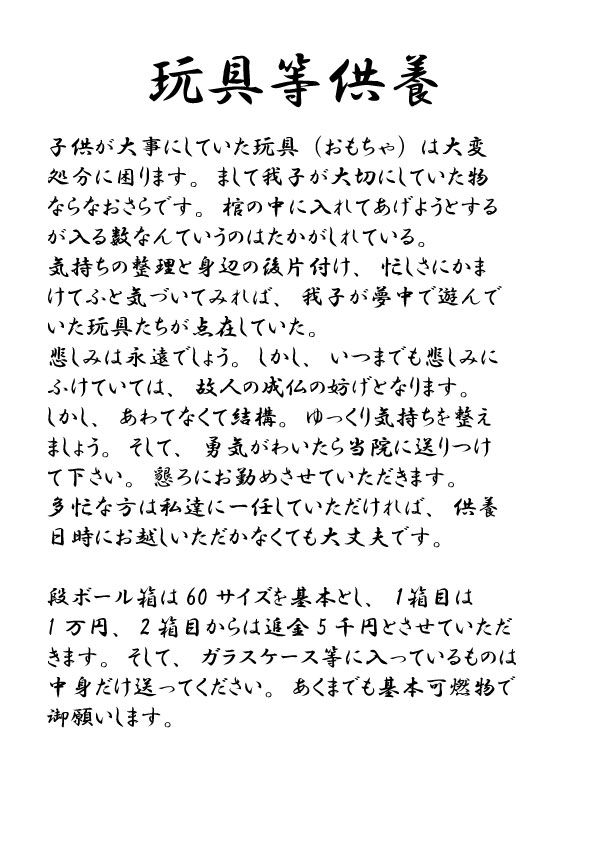 玩具等供養
子供が大事にしていた玩具（おもちゃ）は大変
処分に困ります。まして我子が大切にしていた物
ならなおさらです。棺の中に入れてあげようとする
が入る数なんていうのはたかがしれている。
気持ちの整理と身辺の後片付け、忙しさにかま
けてふと気づいてみれば、我子が夢中で遊んで
いた玩具たちが点在していた。
悲しみは永遠でしょう。しかし、いつまでも悲しみに
ふけていては、故人の成仏の妨げとなります。
しかし、あわてなくて結構。ゆっくり気持ちを整え
ましょう。そして、勇気がわいたら当院に送りつけ
て下さい。懇ろにお勤めさせていただきます。
多忙な方は私達に一任していただければ、供養
日時にお越しいただかなくても大丈夫です。
段ボール箱は60サイズを基本とし、1箱目は
1万円、2箱目からは追金5千円とさせていただ
きます。そして、ガラスケース等に入っているものは
中身だけ送ってください。あくまでも基本可燃物で
御願いします。